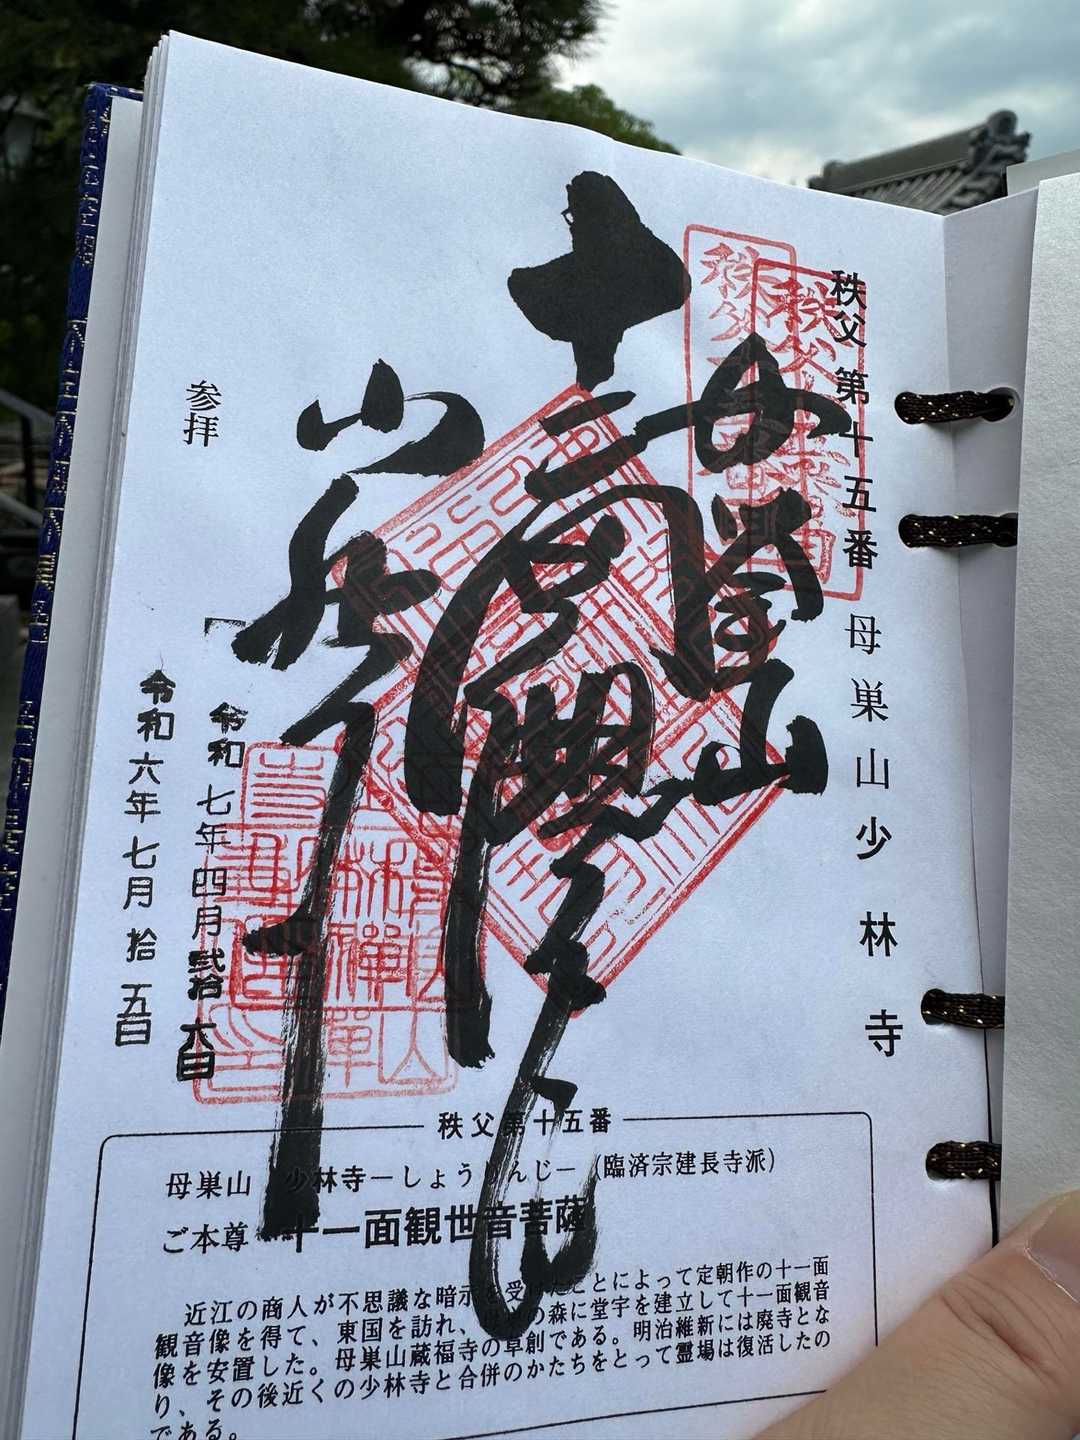 秩父第十五番 母巣山少林寺
母巣山
十一面
少林寺
参拝
令和七年四月弐拾六日
令和六年七月拾五日
秩父第十五番
母巣山 少林寺－しょうりんじ－（臨済宗建長寺派）
ご本尊 十一面観世音菩薩
近江の商人が不思議な暗示を受けたことによって定朝作の十一面
観音像を得て、東国を訪れ、の森に堂宇を建立して十一面観音
像を安置した。母巣山蔵福寺の草創である。明治維新には廃寺とな
り、その後近くの少林寺と合併のかたちをとって霊場は復活したの
である。